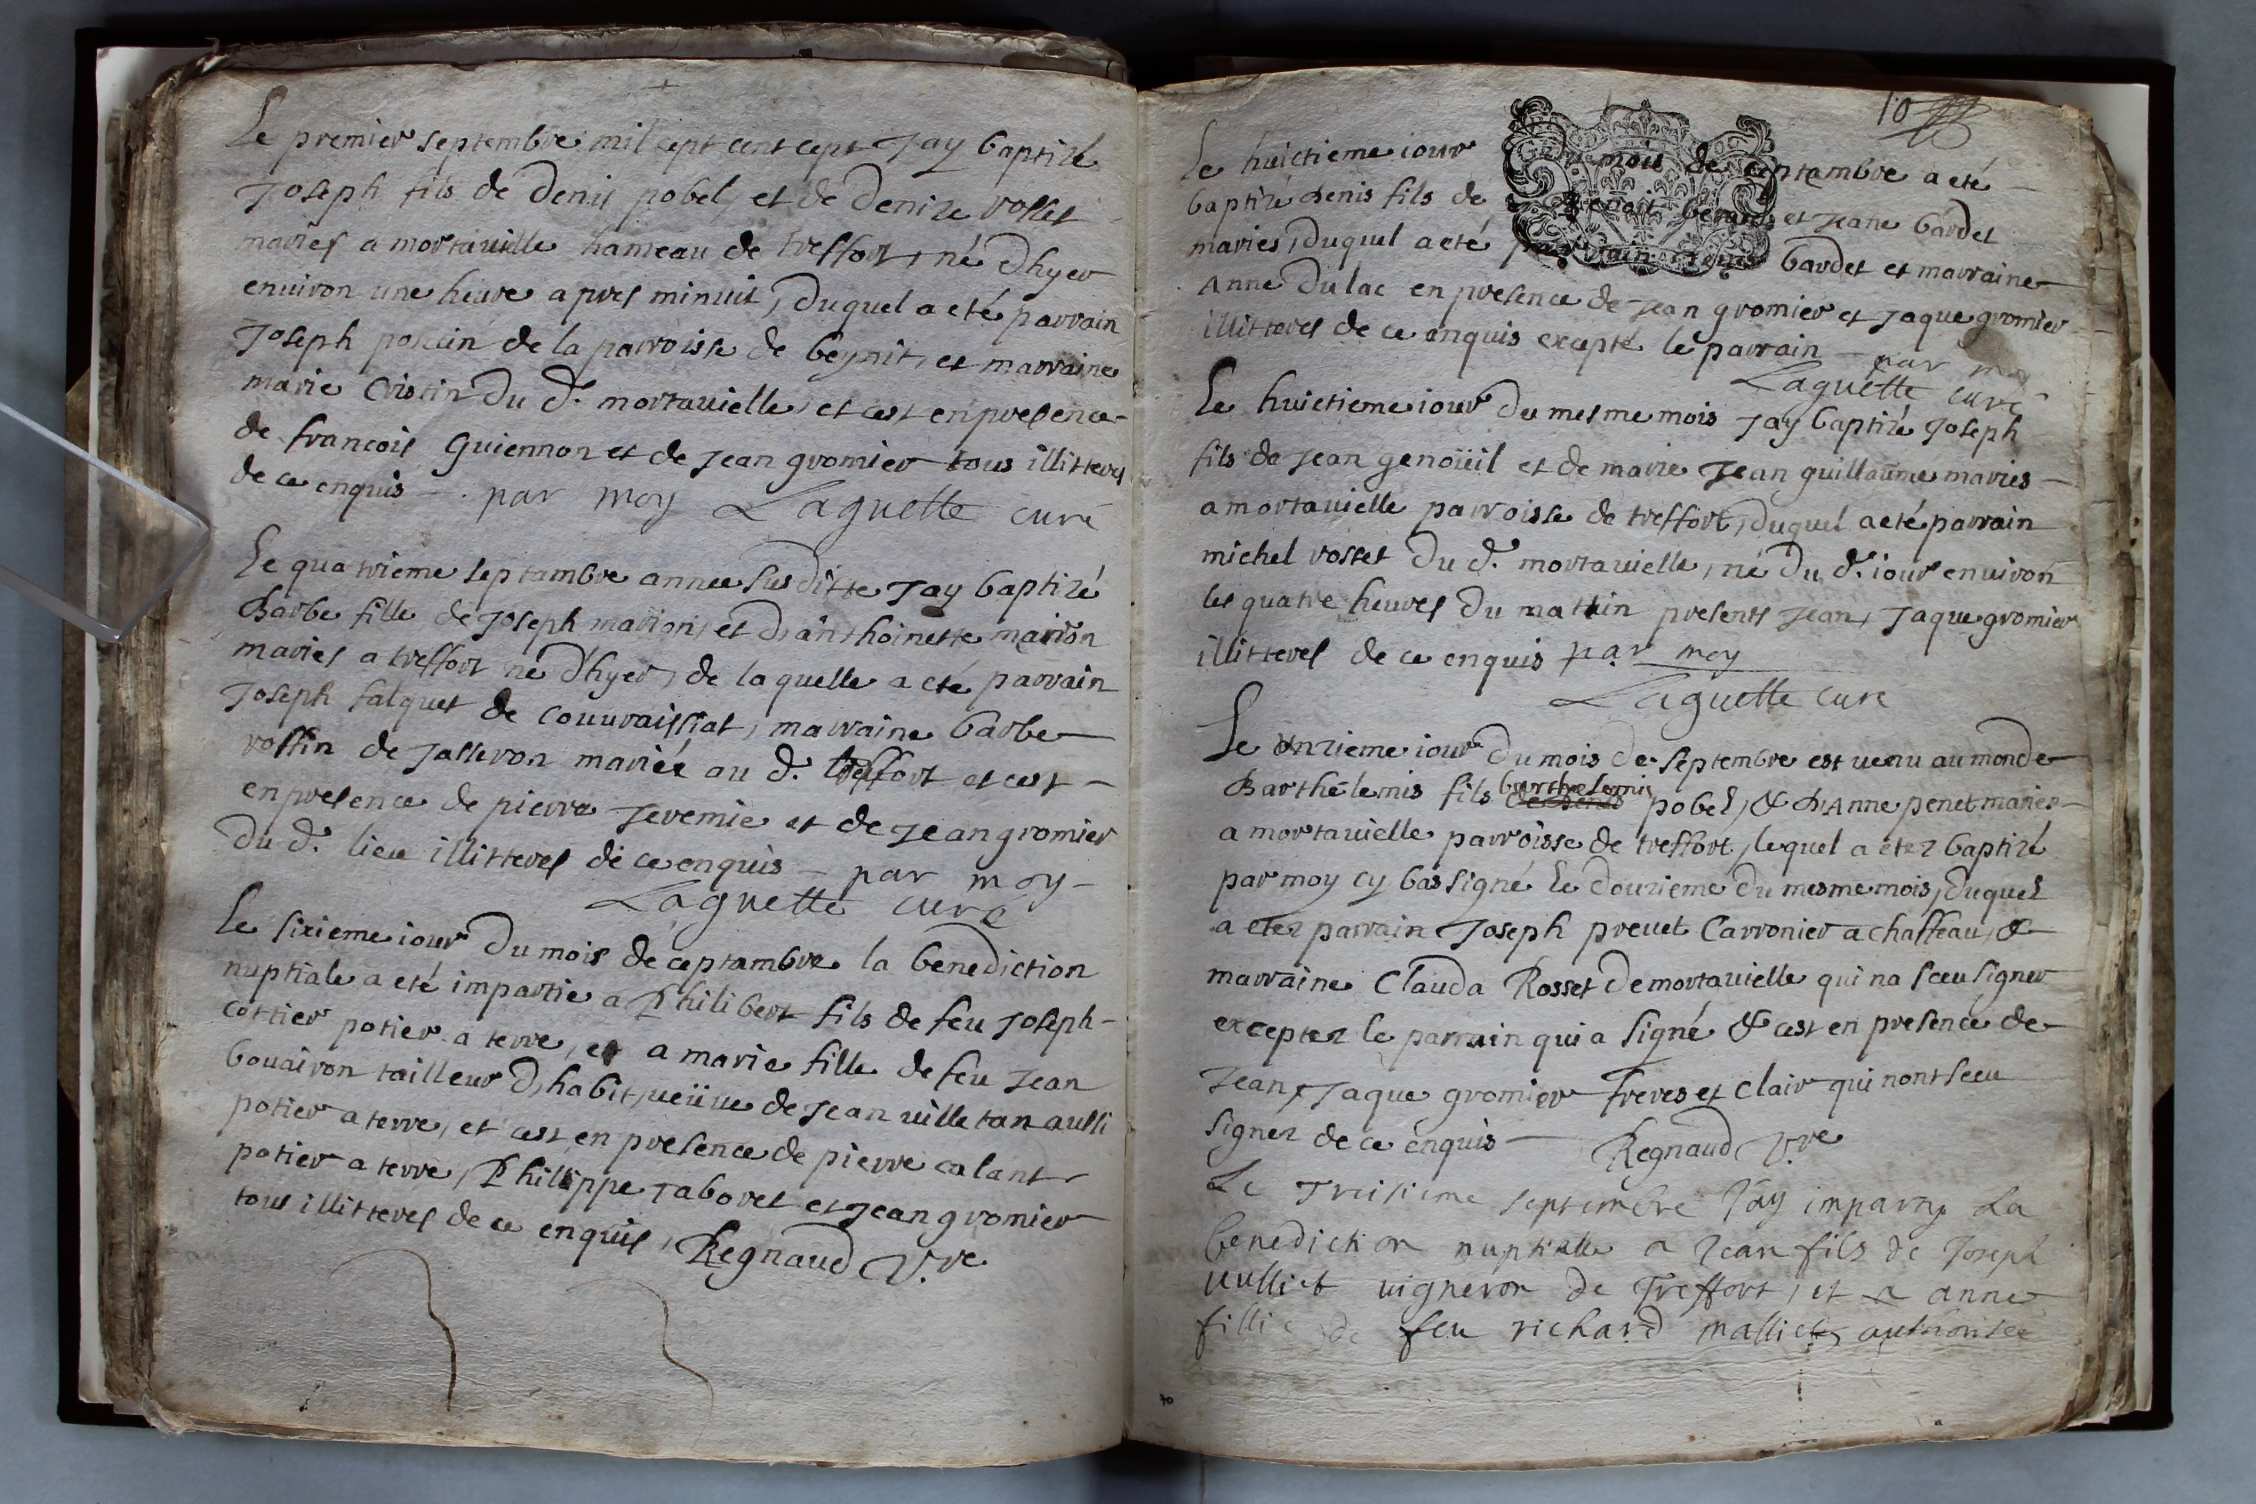 Le premier septembre mil cept cent cept Jay baptizé
Joseph fils de denis pobel, et de denize rosset
mariés a mortauielle hameau de treffort, né dhyer
enuiron une heure apres minuit, duquel a eté parrain
Joseph poncin de la parroisse de beynit, et marraine
marie Cristin du d. mortauielle, et cest en presence
de francois Guiennon et de Jean gromier tous illitteres
de ce enquis par moy Laguette curé
Le quatrieme septambre annee sus ditte Jay baptizé
Barbe fille de Joseph marion, et d,anthoinette marion
mariés a treffort né dhyer, de laquelle a ete parrain
Joseph falquet de couuraissiat, marraine barbe
rossin de Jasseron mariée au d. treffort et cest
en presence de pierre Jeremie et de Jean gromier
du d. lieu illitteres de ce enquis par moy
Laguette curé
Le sixieme iour du mois de ceptambre la benediction
nuptiale a eté impartie a Philibert fils de feu Joseph
cottier potier a terre, et a marie fille de feu Jean
bouairon tailleur d,habit, ueüue de Jean uilletan aussi
potier a terre, et cest en presence de pierre calant
potier a terre, Phillippe Jaboret et Jean gromier
tous illitteres de ce enquis, Regnaud V.re
10
Le huictieme iour du mois de ceptambre a eté
baptizé denis fils de benoit et Jeane bardet
mariés, duquel a eté parrain denis bardet et marraine
Anne dulac en presence de Jean gromier et Jaque gromier
illitteres de ce enquis excepté le parrain par moy
Laguette curé
Le huictieme iour du mesme mois Jay baptizé Joseph
fils de Jean genoüil et de marie Jean guillaume mariés
a mortauielle parroisse de treffort, duquel a eté parrain
michel rosset du d. mortauielle, né du d. iour enuiron
les quatre heures du mattin presents Jean, Jaque gromier
illitteres de ce enquis par moy
Laguette curé
Le onzieme iour du mois de septembre est uenu au monde
Barthélemis fils barthelemis pobel, & d,Anne penet mariés
a mortauielle parroisse de treffort, lequel a etez baptizé
par moy cy bas signé le douzieme du mesme mois, duquel
a etez parrain Joseph preuet Carronier a chaffeau, &
marraine Clauda Rosset de mortauielle qui na sceu signer
exceptez le parrain qui a signé & cest en presence de
Jean, Jaque gromier freres et clair qui nont sceu
signer de ce enquis Regnaud V.re
Le Treisieme septembre J'ay imparty La
benediction nuptialle a Jean fils de Joseph
uulliet uigneron de Treffort, et a anne
fillie de feu richard malliet, authorisée